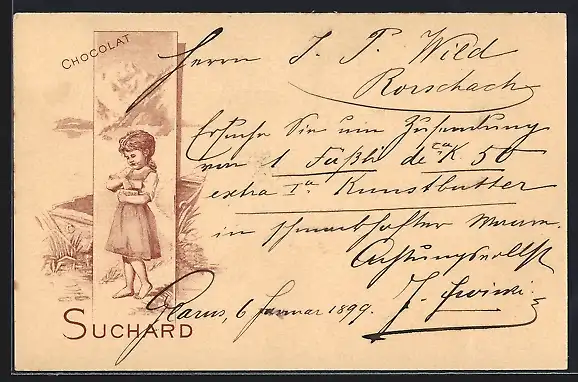 CHOCOLAT
Herrn J. P. Wild
Rorschach
Ersuche Sie um Zusendung
von 1 Fäßli de ca K. 50
extra Ia Kunstbutter
in schmackhafter Waare.
Achtungsvollst
Glarus, 6 Januar 1899.
SUCHARD